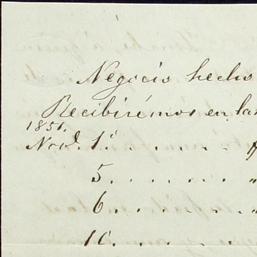 Negocio hecho
Recibirémos en la
1851.
Novb. 1º. . . . . .
5. . . . . . . "
6. . . . . . . "
10. . . . . . "